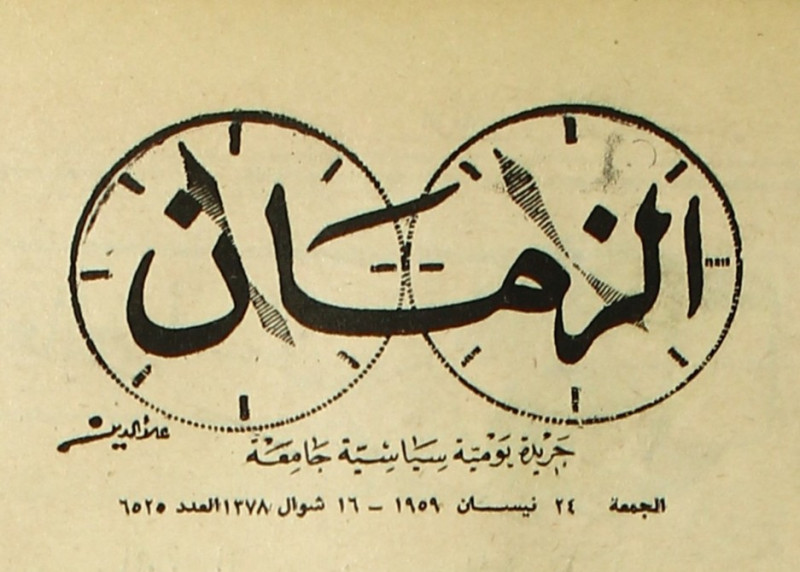 الزمان
علاءالدين
جَريْدة يَوْميّة سِيَاسْتيّة جَامِعَة
الجمعة ٢٤ نيسان ١٩٥٩ – ١٦ شوال ١٣٧٨ العدد ٦٥٢٥